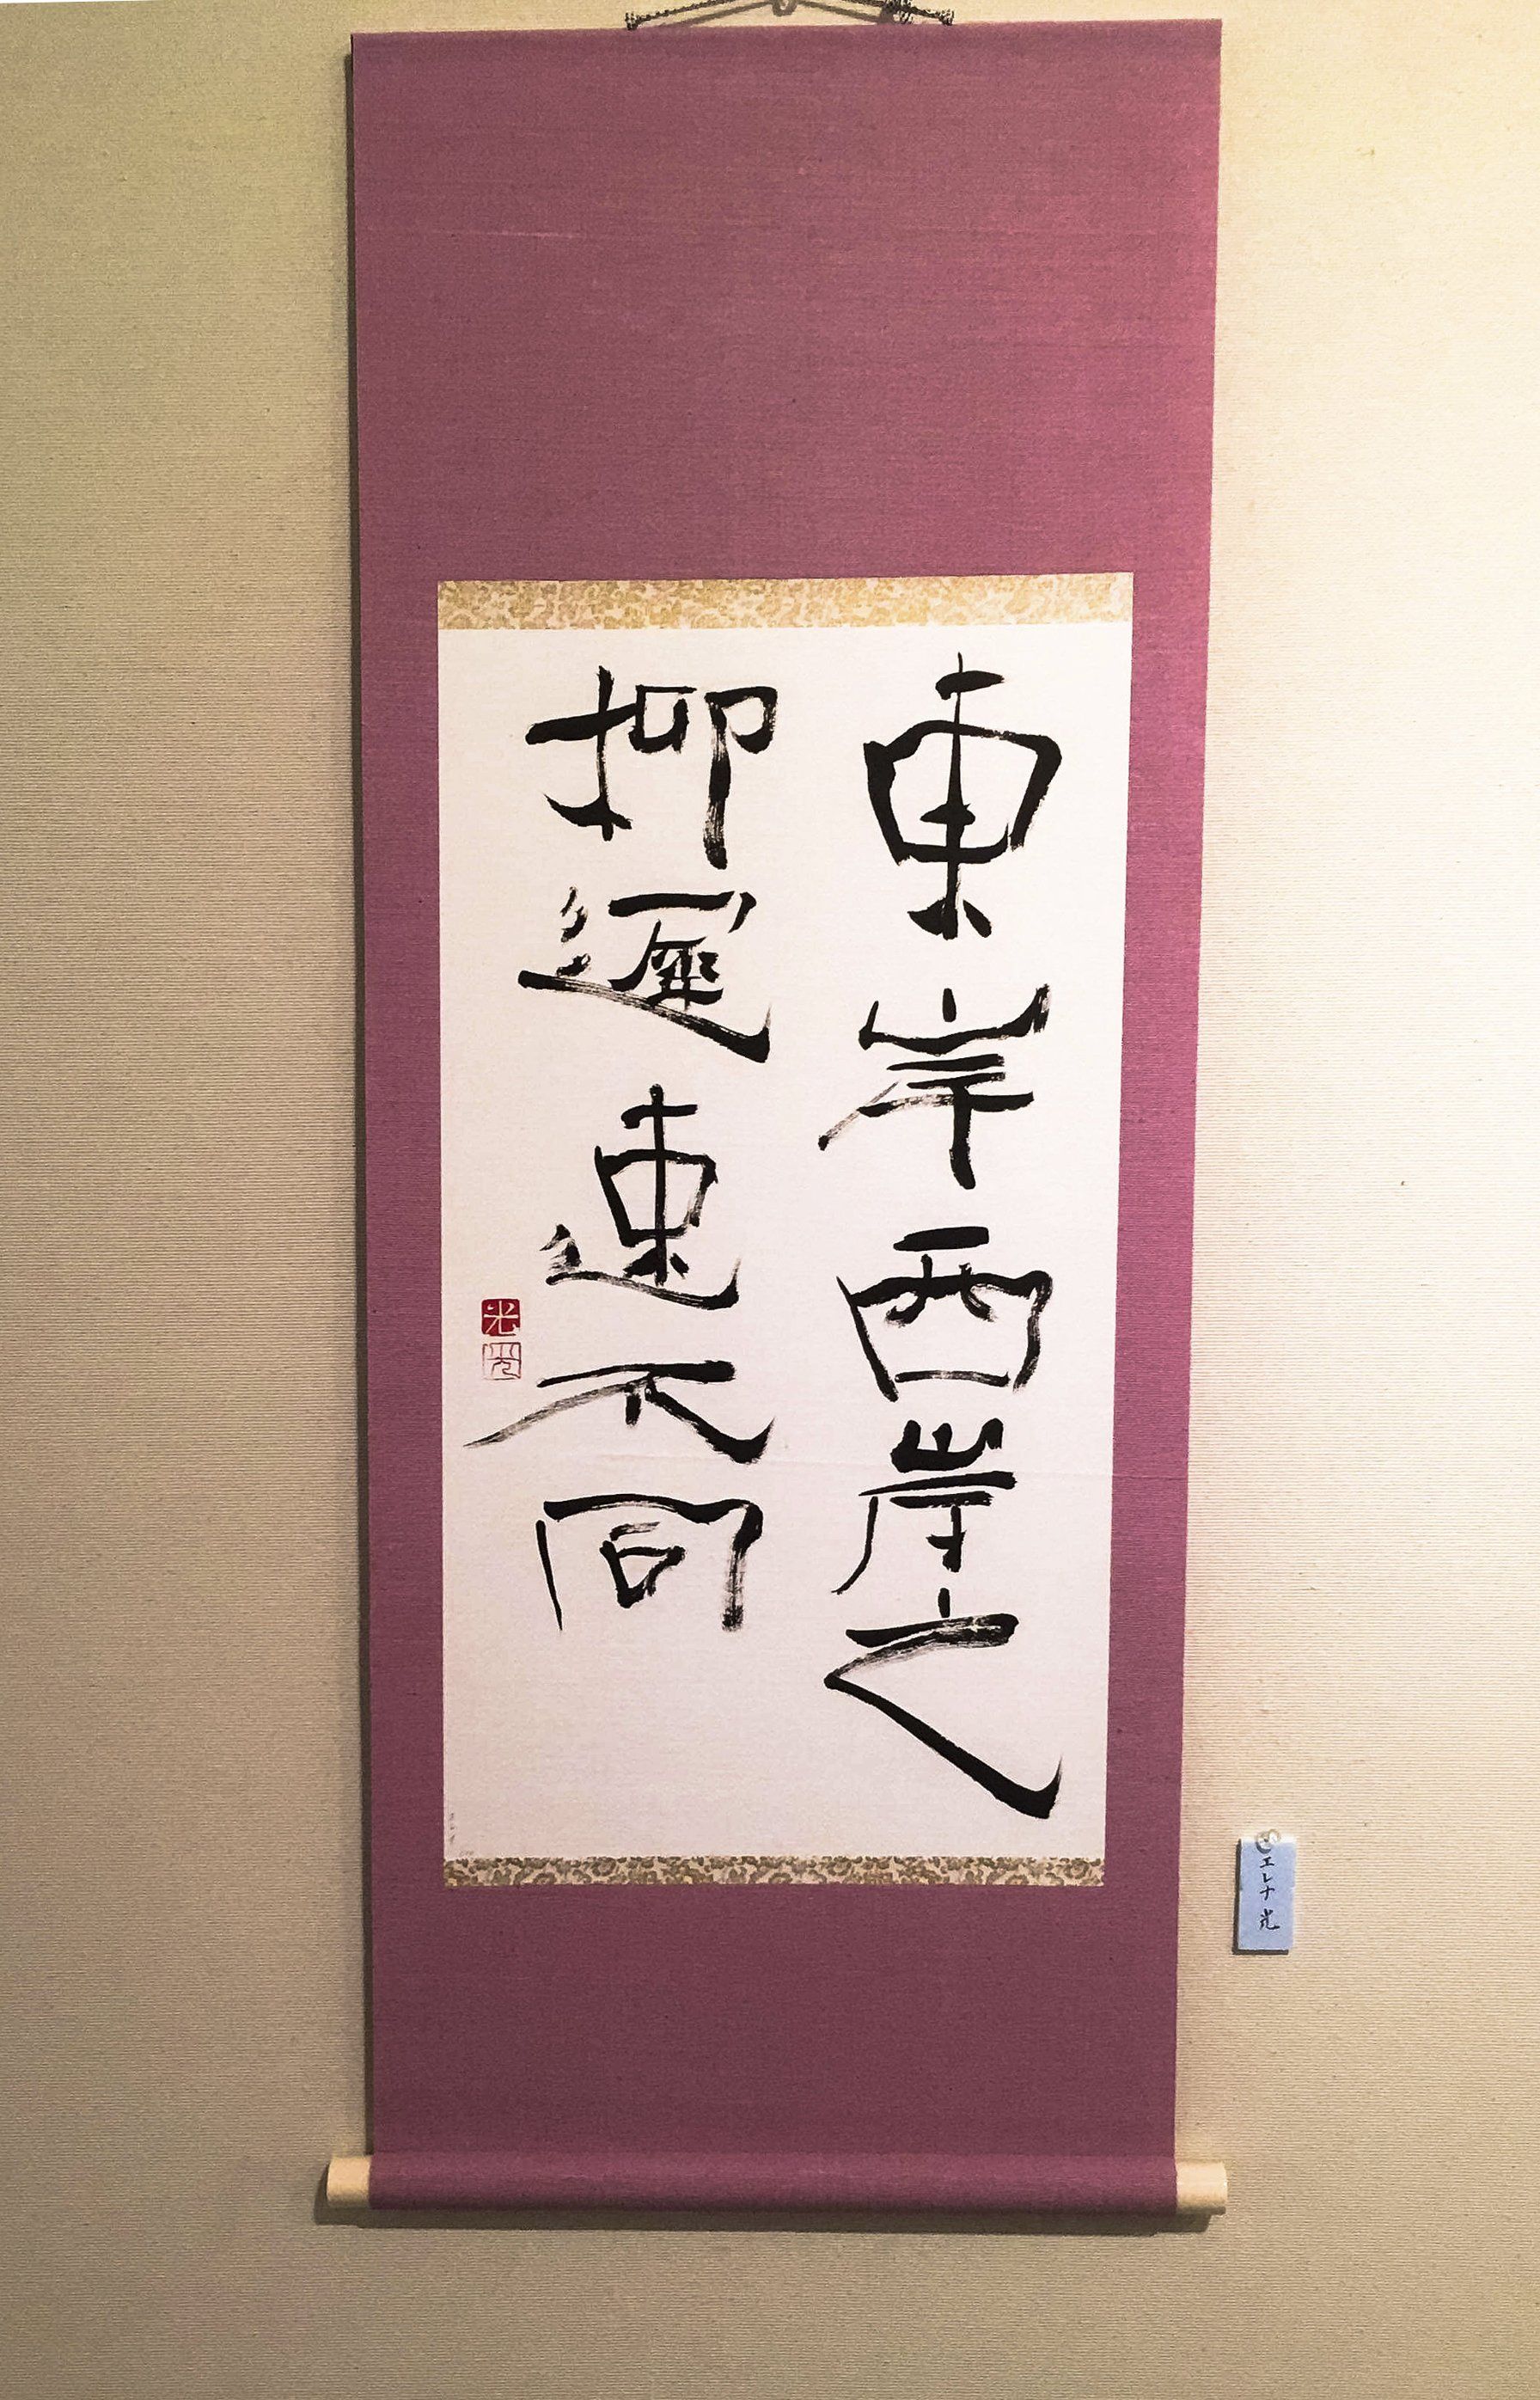 東岸西岸之
柳遲速不同
光
エレナ 光